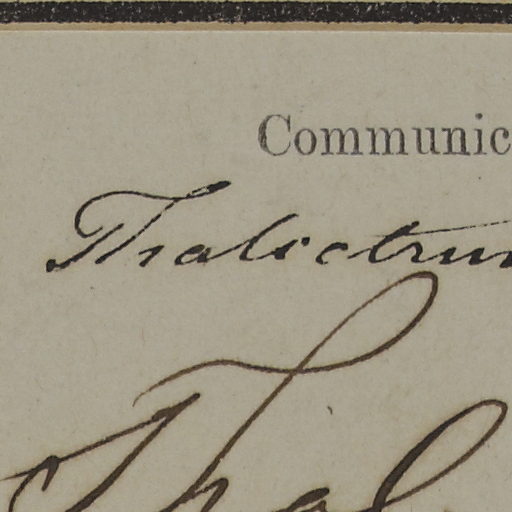 Communic
Thalictrum
Thal